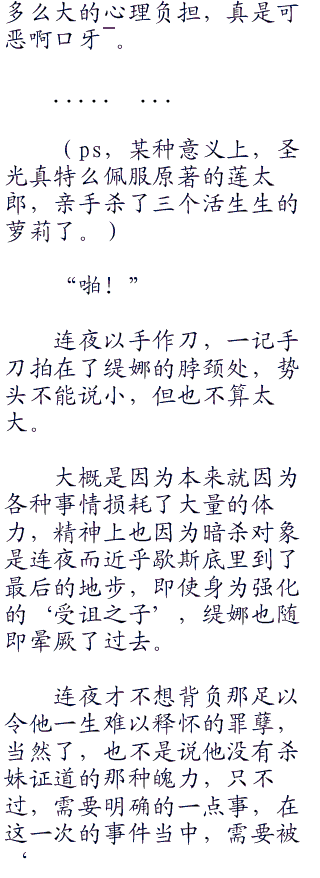 多么大的心理负担，真是可
恶啊口牙¯。
..... ...
（ps，某种意义上，圣
光真特么佩服原著的莲太
郎，亲手杀了三个活生生的
萝莉了。）
“啪！”
连夜以手作刀，一记手
刀拍在了缇娜的脖颈处，势
头不能说小，但也不算太
大。
大概是因为本来就因为
各种事情损耗了大量的体
力，精神上也因为暗杀对象
是连夜而近乎歇斯底里到了
最后的地步，即使身为强化
的‘受诅之子’，缇娜也随
即晕厥了过去。
连夜才不想背负那足以
令他一生难以释怀的罪孽，
当然了，也不是说他没有杀
妹证道的那种魄力，只不
过，需要明确的一点事，在
这一次的事件当中，需要被
‘